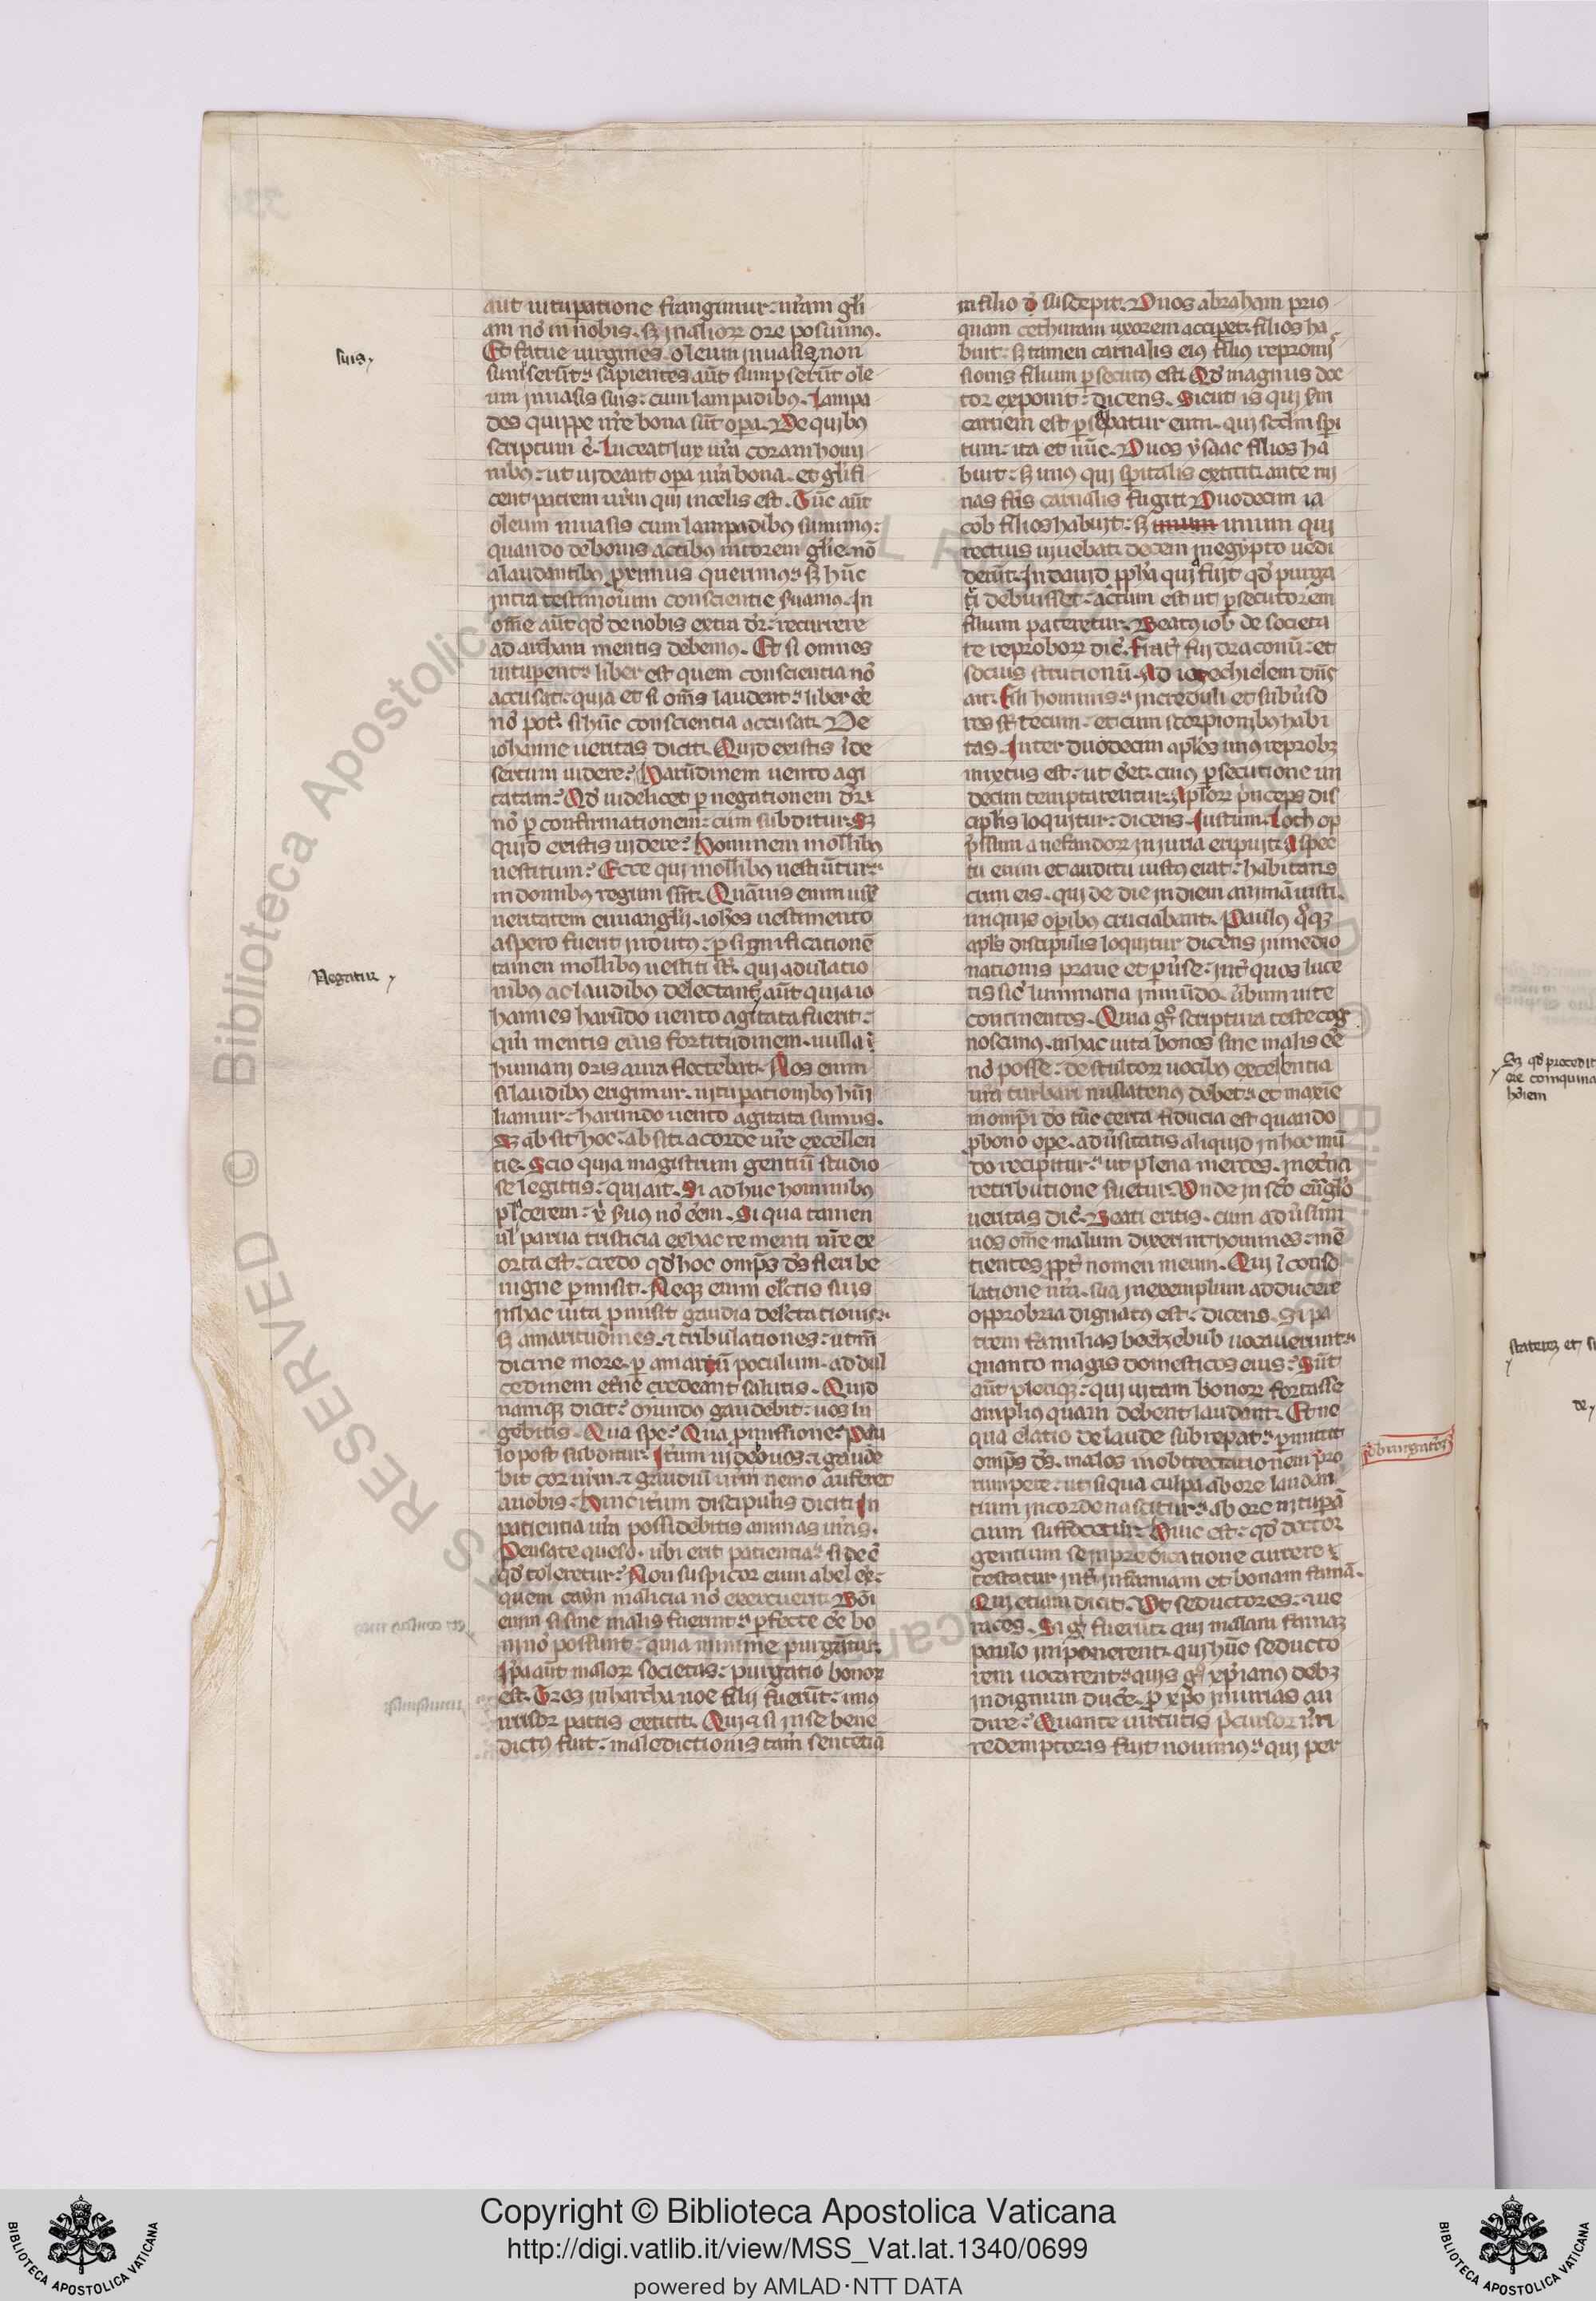 aut uitupatione frangimur: nr̃am gl̃i
am nõ in nobis. sꝫ in alioꝝ ore posuimꝰ.
Et fatue uirgines. oleum in uasis non
sumpserũt: sapientes aũt sumpserũt ole
um in uasis suis: cum lampadibꝰ. Lampa
des quippe nr̃e bona sũt opa. De quibꝰ
scriptum ẽ. Luceat lux ur̃a coram homi
nibꝰ: ut uideant opa ur̃a bona. et gl̃ifi
cent patrem ur̃m qui in celis est. Tũc aũt
oleum in uasis cum lampadibꝰ sumimꝰ:
quando de bonis actibꝰ nitorem gl̃ie. nõ
a laudantibꝰ proximis querimꝰ: sꝫ hũc
intra testimoũium conscientie suamꝰ. In
om̃e aũt qđ de nobis extra dr̃: recurrere
ad archam mentis debemꝰ. Et si omnes
uituperent: liber est quem conscientia nõ
accusat: quia et si om̃s laudent: liber ẽe
nõ pot̃. si hũc conscientia accusat. De
iohanne ueritas dicit. Quid existis ĩ de
sertum uidere? Harũdinem uento agi
tatam? Qđ uidelicet p negationem dr̃:
nõ p confirmationem: cum subditur: Sꝫ
quid existis uidere? Hominem mollibꝰ
uestitum? Ecce qui mollibꝰ uestiũtur:
in domibus regum sũt. Quãuis enim iux̃
ueritatem euuanglij. ioh̃es uestimento
aspero fuerit indutꝰ: p significationẽ
tamen mollibꝰ uestiti st̃. qui adulatio
nibꝰ ac laudibꝰ delectant̃. aũt quia io
hannes harũdo uento agitata fuerit:
qm̃ mentis eius fortitudinem. nulla
humani oris aura flectebat. Nos enim
si laudibus erigimur. uitupationibꝰ hũi
liamur: harundo uento agitata sumus.
Sꝫ absit hoc: absit a corde ur̃e excellen
tie. Scio quia magistrum gentiũ studio
se legitis: qui ait. Si adhuc hominibꝰ
placerem: x̃ suꝰ nõ ẽem. Si qua tamen
ul̃ parua tristicia ex hac re menti ur̃e ex
orta est: credo qđ hoc omp̃s ds̃ fieri be
nigne pmisit. Neqꝫ enim electis suis
in hac uita pmisit gaudia delectationis:
sꝫ amaritudines. ⁊ tribulationes: ut m̃
dicine more. p amarũ poculum. ad dul
cedinem etne credeant salutis. Quid
namqꝫ dicit? Mundꝰ gaudebit: uos lu
gebitis. Qua spe? Qua pmissione? Pau
lo post subditur. Itrum uidebo uos. ⁊ gaude
bit cor ur̃m. ⁊ gaudiũ ur̃m nemo auferet
a uobis. Hinc itrum discipulis dicit. In
patientia ur̃a possidebitis animas ur̃as.
Pensate queso. ubi erit patientia: si deẽ
qđ toleretur? Non suspicor eum abel ẽe:
quem cayn malicia nõ exercuerit. Boni
enim si sine malis fuerint: pfecte ẽe bo
ni nõ possunt: quia minime purgãtur.
Ip̃a aũt maloꝝ societas: purgatio bonoꝝ
est. Tres in harcha noe filij fuerũt: unꝰ
irrisor patris extitit. Qui ⁊ si in se bene
dictꝰ fuit: maledictionis tam̃ sentẽtiã
in filio suscepit. Duos abraham priꝰ
quam cethuram uxorem acciperet filios ha
buit: sꝫ tamen carnalis eiꝰ filius repromi
sionis filium psecutꝰ est. Qđ magnus doc
tor exponit: dicens. Sicut is qui sm̃
carnem est psequebatur eum. qui scdm̃ spi
tum: ita et nũc. Duos ysaac filios ha
buit: sꝫ unꝰ qui spiritalis extitit. ante mi
nas fr̃is carnalis fugit. Duodecim ia
cob filios habuit: sꝫ unum qui
rectius uiuebat. decem in egypto uendi
derũt. In dauid pp̃ha qui fuit qđ purga
ri debuisset: actum est ut psecutorem
filium pateretur. Beatꝰ iob de societa
te reproboꝝ dic̃. Frat̃ fui draconũ: et
socius strutionũ. Ad iezechielem dñs
ait. Fili hominis: increduli et subũso
res st̃ tecum: et cum scorpionibꝰ habi
tas. Inter duodecim ap̃los unꝰ reprobꝰ
mixtus est: ut ẽet cuiꝰ psecutione un
decim temptarentur. Ap̃loꝝ p̃nceps dis
cipl̃is loquitur: dicens. Iustum. Loth op
p̃ssum a nefandoꝝ iniuria eripuit: Aspec
tu enim et auditu iustꝰ erat: habitans
cum eis. qui de die in diem animã iusti.
iniquis opibus cruciabant. Paulꝰ q̃qꝫ
apl̃s discipulis loquitur dicens in medio
nationis praue et p̃use: int̃ quos luce
tis sic̃ luminaria in mũdo. ũbum uite
continentes. Quia gͦ scriptura teste cog
noscimꝰ. in hac uita bonos sine malis ẽe
nõ posse: de stultoꝝ uocibꝰ excellentia
ur̃a turbari nullatenꝰ debet: et maxie
in omp̃i do tũc certa fiducia est quando
p bono ope. aduẽsitatis aliquid in hoc mũ
do recipitur: ut plena merces. in etr̃na
retributione suetur. Unde in sc̃o euãgl̃o
ueritas dic̃. Beati eritis. cum aduẽsum
uos om̃e malum dixerint homines: mẽ
tientes ppt̃ nomen meum. Qui ĩ conso
latione ur̃a. sua in exemplum adducere
opprobria dignatꝰ est: dicens. Si pa
trem familias beelzebub uocauerunt:
quanto magis domesticos eius? Sũt
aũt pleriqꝫ: qui uitam bonoꝝ fortasse
amplius quam debent laudant. Et ne
qua elatio de laude subrepat: pmittit
omp̃s ds̃. malos in obtrectationem pro
rumpere: ut si qua culpa ab ore laudan
tium in corde nascitur: ab ore uitupã
cium suffocetur. Hinc est: qđ doctor
gentium se in predicatione currere
testatur int̃ infamiam et bonam famã.
Qui etiam dicit. Ut seductores. ⁊ ue
races. Si gͦ fuerũt qui malam famaꝫ
paulo imponerent. qui hũc seducto
rem uocarent: quis gͦ xp̃ianus debꝫ
indignum ducẽ. p xp̃o iniurias au
dire? Quante uirtutis p̃cursor nr̃i
redemptoris fuit nouimꝰ: qui per
suis
Negatur
obiurgatõis
Sꝫ qđ procedit
ore coinquina
hoĩem
de
Copyright © Biblioteca Apostolica Vaticana
http://digi.vatlib.it/view/MSS_Vat.lat.1340/0699
powered by AMLAD·NTT DATA
BIBLIOTECA APOSTOLICA VATICANA
BIBLIOTECA APOSTOLICA VATICANA